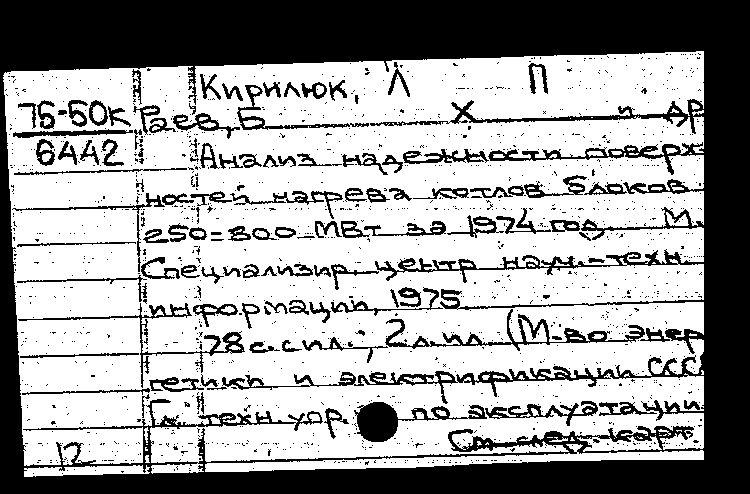 Кирилюк, Л П
75-50к Раев, Б Х и др
6442 Анализ надежности поверх-
ностей нагрева котлов блоков
250-800 МВт за 1974 год М.
Специализир. центр науч.-техн.
информации, 1975
78 с. с ил.; 2 л. ил (М-во энер
гетики и электрификации СССР
Гл. техн. упр. по эксплуатации
См след. карт.
12